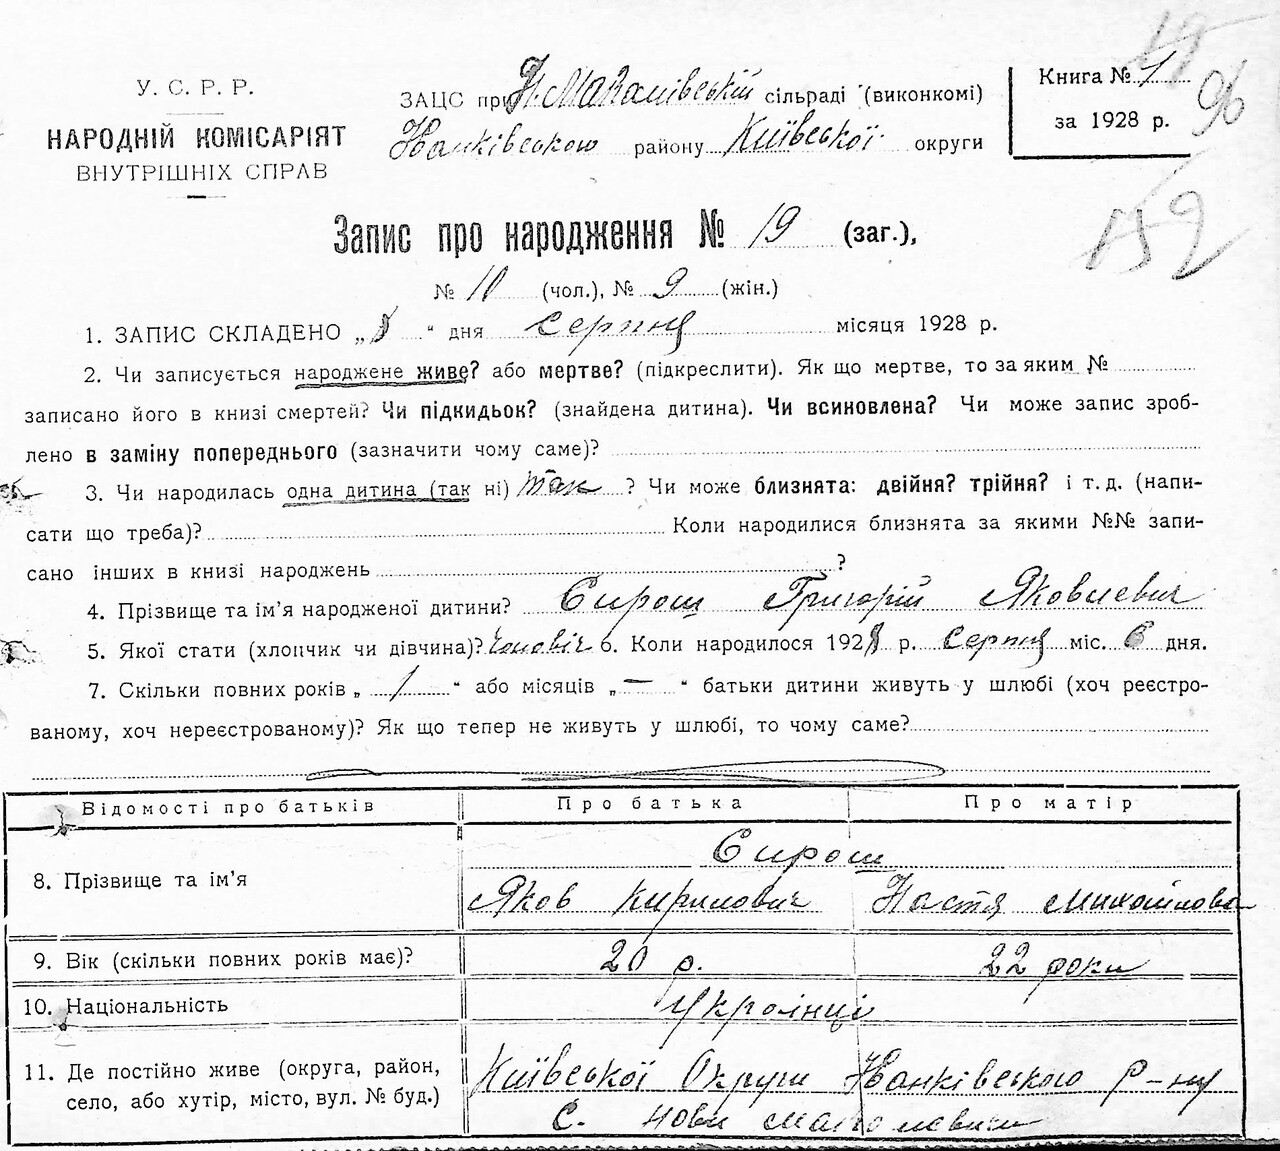 У. С. Р. Р.
НАРОДНІЙ КОМІСАРІЯТ
ВНУТРІШНІХ СПРАВ
ЗАЦС при Н. Макалівській сільраді (виконкомі)
Іванківського району Київської округи
Книга № 1
за 1928 р.
96
152
Запис про народження № 19 (заг.),
№ 10 (чол.), № 9 (жін.)
1. ЗАПИС СКЛАДЕНО „8“ дня серпня місяця 1928 р.
2. Чи записується народжене живе? або мертве? (підкреслити). Як що мертве, то за яким №
записано його в книзі смертей? Чи підкидьок? (знайдена дитина). Чи всиновлена? Чи може запис зроб-
лено в заміну попереднього (зазначити чому саме)?
3. Чи народилась одна дитина (так ні) так ? Чи може близнята: двійня? трійня? і т. д. (напи-
сати що треба)? Коли народилися близнята за якими №№ запи-
сано інших в книзі народжень ?
4. Прізвище та ім'я народженої дитини? Сирош Григорій Яковлевич
5. Якої стати (хлопчик чи дівчина)? Чоловіч 6. Коли народилося 1928 р. серпня міс. 6 дня.
7. Скільки повних років „ 1 “ або місяців „ — “ батьки дитини живуть у шлюбі (хоч реєстро-
ваному, хоч нереєстрованому)? Як що тепер не живуть у шлюбі, то чому саме?
Відомості про батьків Про батька Про матір
Сирош
8. Прізвище та ім'я Яков Кирилович Настя Михайловна
9. Вік (скільки повних років має)? 20 р. 22 роки
10. Національність Українці
11. Де постійно живе (округа, район, Київської Округи Іванківського Р-ну
село, або хутір, місто, вул. № буд.) С. Нови Макалевичи